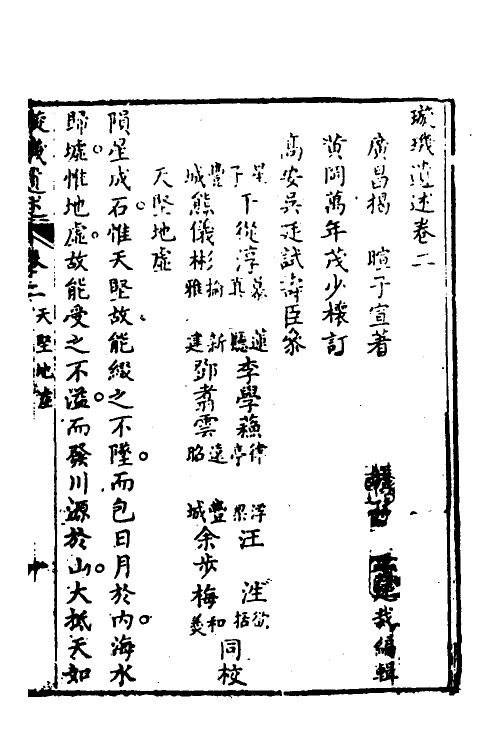 璇璣遺述卷二
廣昌揭 暄子宣著 裁編輯
黃岡萬年茂少懷訂
高安吳廷試壽臣叅
星子 下從淳慕真 蓮廳 李學蘓律亭 浮梁 汪 洼 括 同校
豐城 熊儀彬雅 新建 鄧翥雲遠昭 豐城 余步梅和羮
天堅地虛
隕星成石惟天堅故能綴之不墜而包日月於內海水
歸墟惟地虛故能受之不溢而發川源於山大抵天如
璇璣遺述 卷之二 天堅地虛